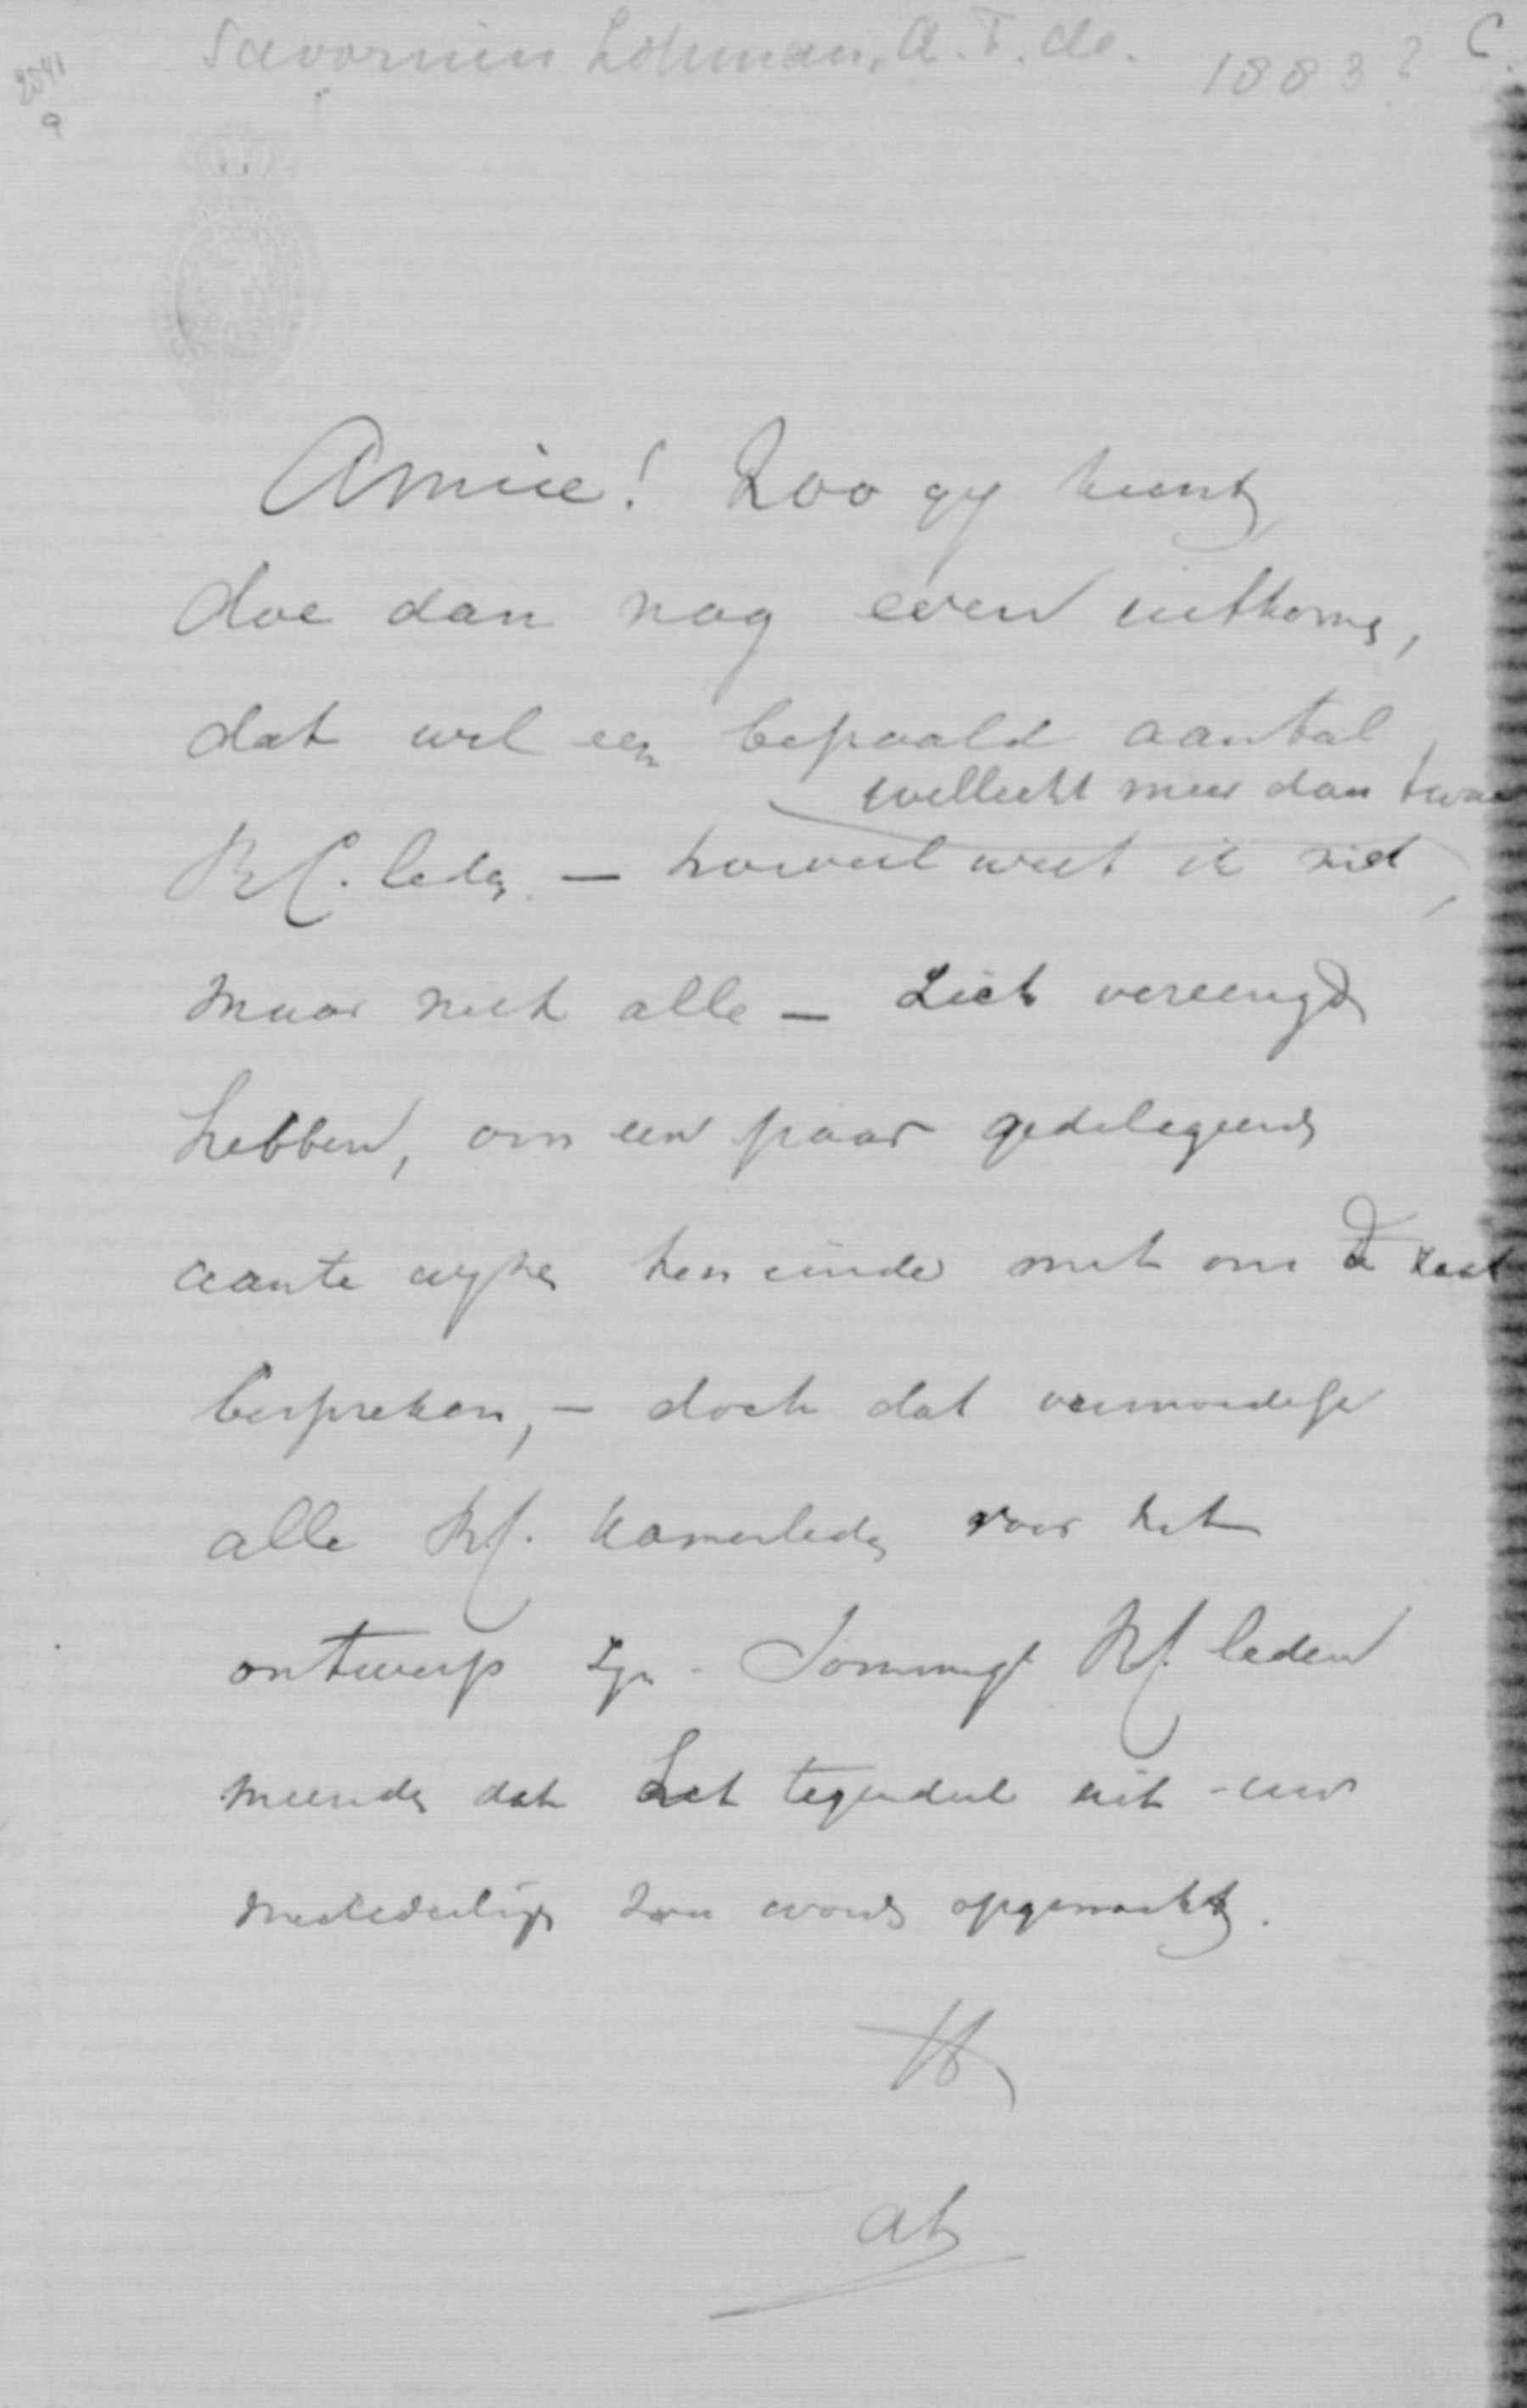 Savornin Lohman, A. F. de. 1883? C.
2041
9
Amice! Zoo gij kunt
doe dan nog even uitkomen,
dat wel een bepaald aantal
wellicht meer dan twee
R.C. leden — hoeveel weet ik niet,
maar niet alle — zich vereenigd
hebben, om een paar gedelegeerden
aan te wijzen ten einde met ons de zaak
bespreken, — doch dat vermoedelijk
alle R.C. Kamerleden voor het
ontwerp zijn. Sommige R.C. leden
meenden dat het tegendeel uit uw
mededeeling zou worden opgemaakt.
tt